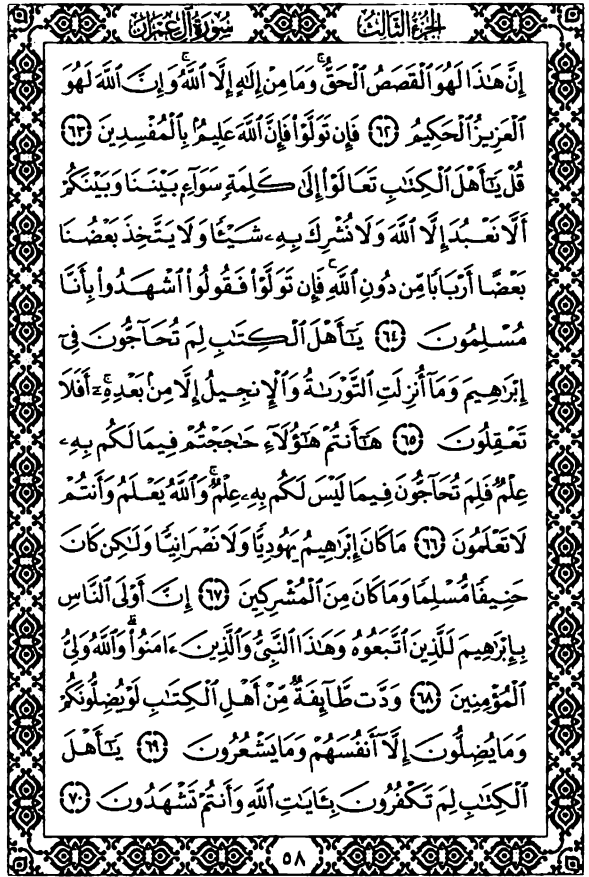 سُورَةُ آلِ عِمْرَان الجُزْءُ الثَّالِثُ
إِنَّ هَٰذَا لَهُوَ ٱلْقَصَصُ ٱلْحَقُّ ۚ وَمَا مِنْ إِلَٰهٍ إِلَّا ٱللَّهُ ۚ وَإِنَّ ٱللَّهَ لَهُوَ
ٱلْعَزِيزُ ٱلْحَكِيمُ ٦٢ فَإِن تَوَلَّوْا۟ فَإِنَّ ٱللَّهَ عَلِيمٌۢ بِٱلْمُفْسِدِينَ ٦٣
قُلْ يَٰٓأَهْلَ ٱلْكِتَٰبِ تَعَالَوْا۟ إِلَىٰ كَلِمَةٍ سَوَآءٍۭ بَيْنَنَا وَبَيْنَكُمْ
أَلَّا نَعْبُدَ إِلَّا ٱللَّهَ وَلَا نُشْرِكَ بِهِۦ شَيْـًٔا وَلَا يَتَّخِذَ بَعْضُنَا
بَعْضًا أَرْبَابًا مِّن دُونِ ٱللَّهِ ۚ فَإِن تَوَلَّوْا۟ فَقُولُوا۟ ٱشْهَدُوا۟ بِأَنَّا
مُسْلِمُونَ ٦٤ يَٰٓأَهْلَ ٱلْكِتَٰبِ لِمَ تُحَآجُّونَ فِىٓ
إِبْرَٰهِيمَ وَمَآ أُنزِلَتِ ٱلتَّوْرَىٰةُ وَٱلْإِنجِيلُ إِلَّا مِنۢ بَعْدِهِۦٓ ۚ أَفَلَا
تَعْقِلُونَ ٦٥ هَٰٓأَنتُمْ هَٰٓؤُلَآءِ حَٰجَجْتُمْ فِيمَا لَكُم بِهِۦ
عِلْمٌ فَلِمَ تُحَآجُّونَ فِيمَا لَيْسَ لَكُم بِهِۦ عِلْمٌ ۚ وَٱللَّهُ يَعْلَمُ وَأَنتُمْ
لَا تَعْلَمُونَ ٦٦ مَا كَانَ إِبْرَٰهِيمُ يَهُودِيًّا وَلَا نَصْرَانِيًّا وَلَٰكِن كَانَ
حَنِيفًا مُّسْلِمًا وَمَا كَانَ مِنَ ٱلْمُشْرِكِينَ ٦٧ إِنَّ أَوْلَى ٱلنَّاسِ
بِإِبْرَٰهِيمَ لَلَّذِينَ ٱتَّبَعُوهُ وَهَٰذَا ٱلنَّبِىُّ وَٱلَّذِينَ ءَامَنُوا۟ ۗ وَٱللَّهُ وَلِىُّ
ٱلْمُؤْمِنِينَ ٦٨ وَدَّت طَّآئِفَةٌ مِّنْ أَهْلِ ٱلْكِتَٰبِ لَوْ يُضِلُّونَكُمْ
وَمَا يُضِلُّونَ إِلَّآ أَنفُسَهُمْ وَمَا يَشْعُرُونَ ٦٩ يَٰٓأَهْلَ
ٱلْكِتَٰبِ لِمَ تَكْفُرُونَ بِـَٔايَٰتِ ٱللَّهِ وَأَنتُمْ تَشْهَدُونَ ٧٠
٥٨